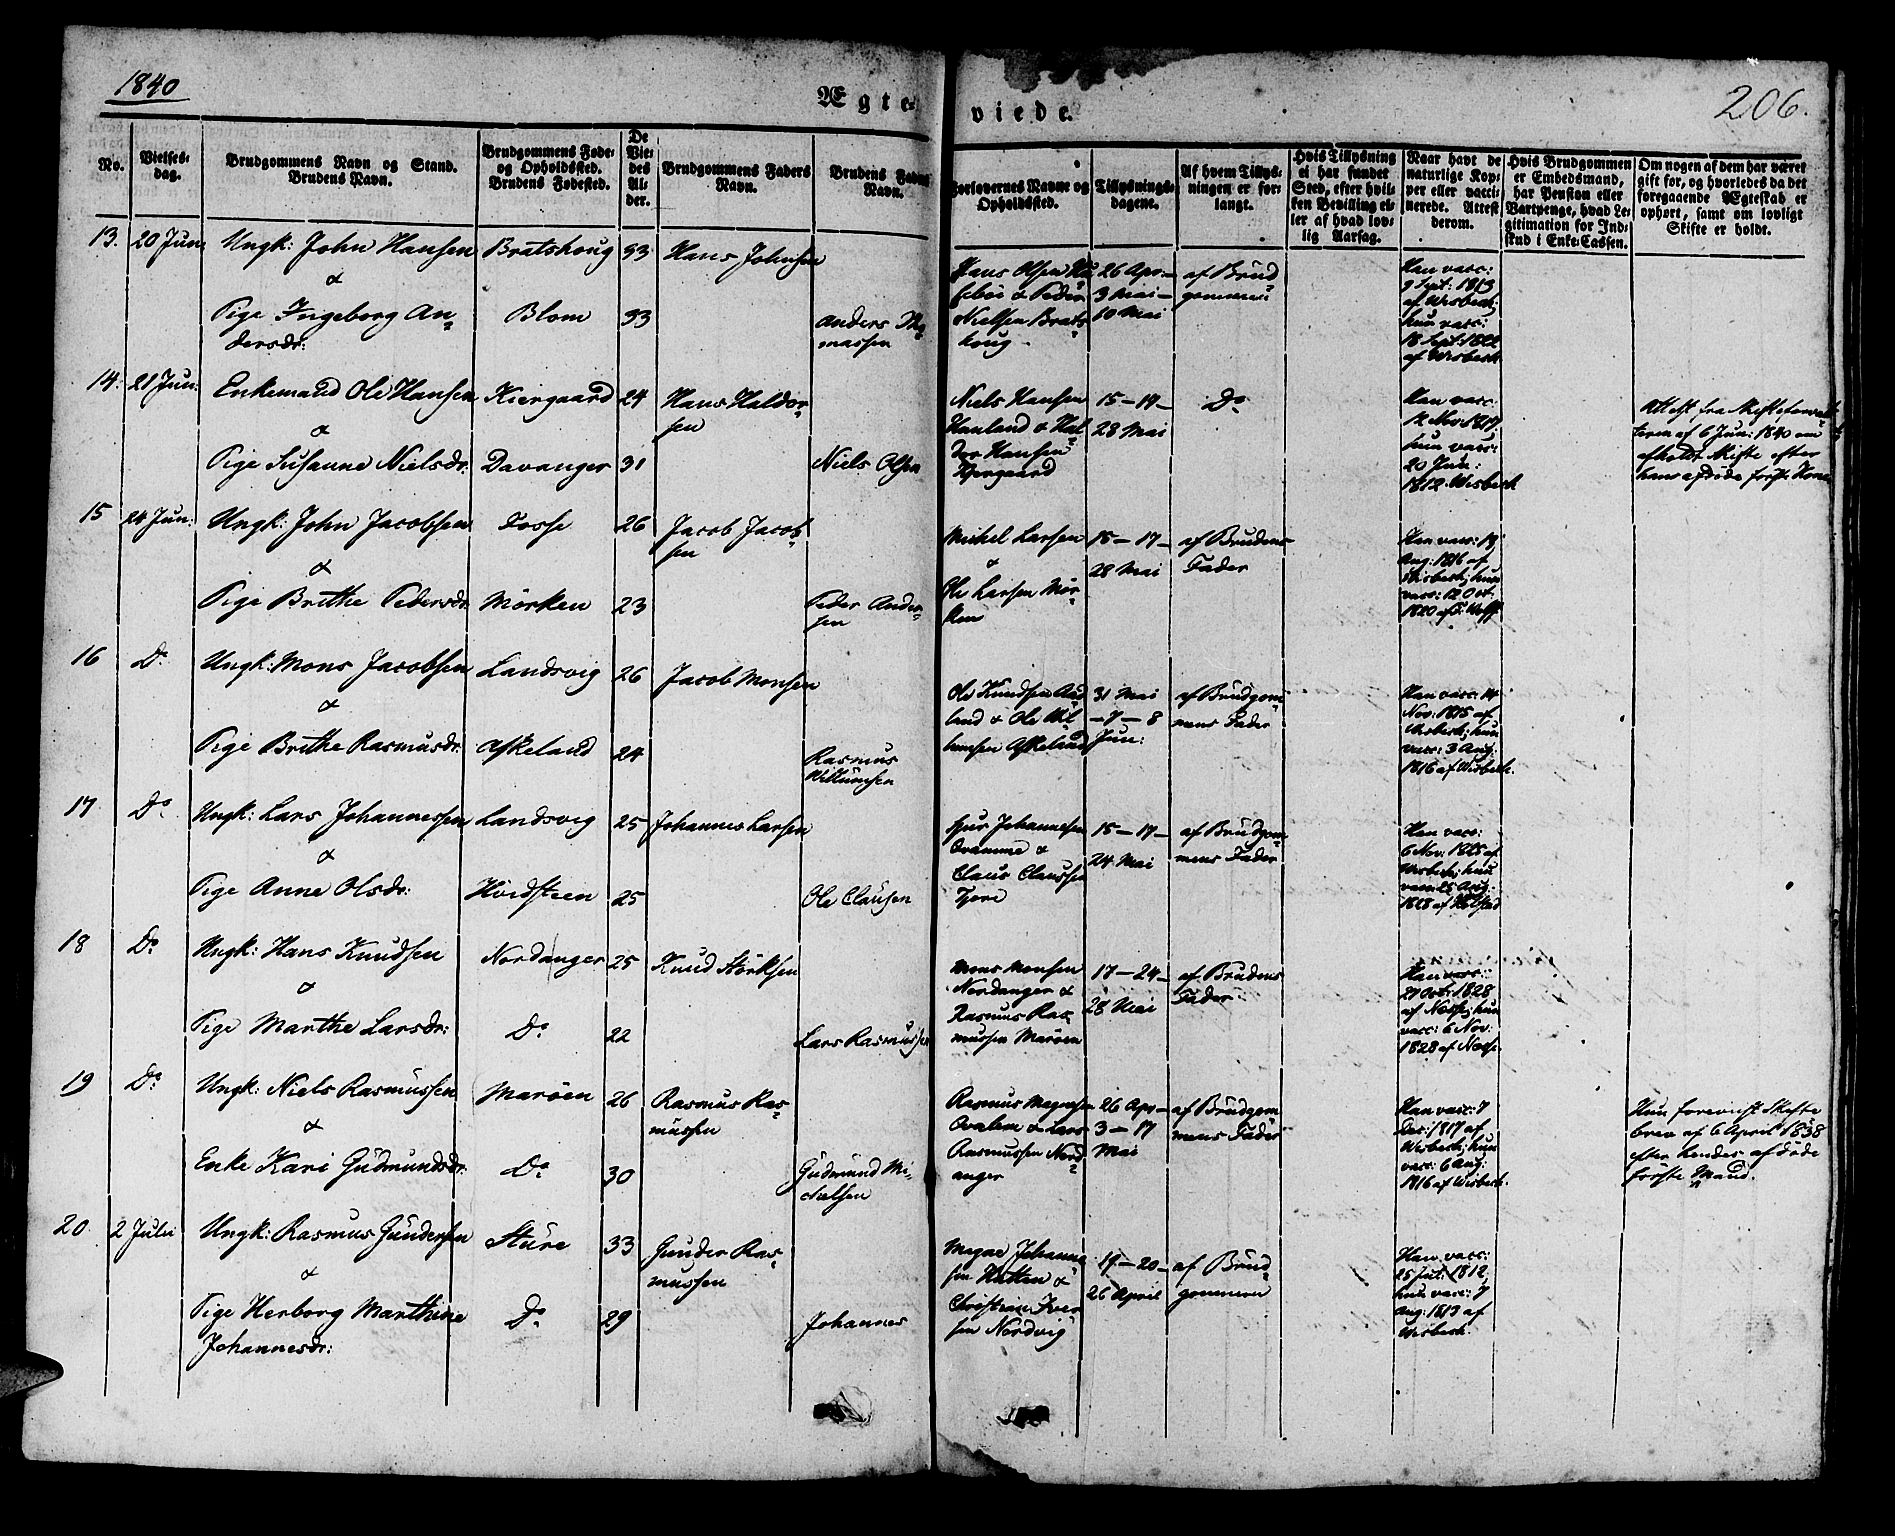 1840
Ægte-
viede.
206.
No.
Vielses-
dag.
Brudgommens Navn og Stand.
Brudens Navn.
Brudgommens Føde-
og Opholdssted.
Brudens Fødested.
De
Vie-
des
Al-
der.
Brudgommens Faders
Navn.
Brudens Faders
Navn.
Forlovernes Navne og
Opholdssted.
Tillysnings-
dagene.
Af hvem Tillys-
ningen er for-
langt.
Hvis Tillysning
ei har fundet
Sted, efter hvil-
ken Bevilling el-
ler af hvad lov-
lig Aarsag.
Naar havt de
naturlige Kop-
per eller vacci-
nerede. Attest
derom.
Hvis Brudgommen
er Embedsmand,
har Pension eller
Vartpenge, hvad Le-
gitimation for Ind-
skud i Enke-Cassen.
Om nogen af dem har været
gift før, og hvorledes da det
foregaaende Ægteskab er
ophørt, samt om lovligt
Skifte er holdt.
13. 20 Jun: Ungk: John Hansen Bratshoug 33 Hans Johnsen
&
Pige Ingeborg An-
dersdr: Blom 33 Anders Tho-
massen
Hans Olsen
& Peder
Nielsen Brats-
houg
26 Apr-
3 Mai-
10 Mai
af Brud-
gommen
Han vacc:
9 Sept: 1813
af Wisbech;
hun vacc:
18 Sept: 1822
af Wisbech
14. 21 Jun: Enkemand Ole Hansen Kiergaard 24 Hans Haldor-
sen
&
Pige Susanne Nielsdr: Davanger 31 Niels Olsen
Niels Hansen
Hauland & Hal-
dor Hansen
Kjergaard
15-19-
28 Mai
Do
Han vacc:
12 Nov: 1817
hun vacc:
20 Jun:
1812 Wisbech
Attest fra Skifteforval-
teren af 6 Jun: 1840 om
afholdt Skifte efter
hans afdøde første Kone
15 24 Jun: Ungk: John Jacobsen Fosse 26 Jacob Jacob-
sen
&
Pige Brithe Pedersdr: Mörken 23 Peder Ander-
sen
Michel Larsen
&
Ole Larsen Mör-
ken
15-17-
28 Mai
af Brudens
Fader
Han vacc: 19
Aug: 1816 af
Wisbech; hun
vacc: 12 Oct:
1820 af
16 Do Ungk: Mons Jacobsen Landsvig 26 Jacob Monsen
&
Pige Brithe Rasmusdr: Askeland 24 Rasmus
Willumsen
Ole Knudsen
land & Ole Wil-
lumsen Askeland
31 Mai
-7-8
Jun:
af Brudgom-
mens Fader
Han vacc: 14
Nov: 1815 af
Wisbech; hun
vacc: 3 Aug:
1816 af Wisbech.
17 Do Ungk: Lars Johannessen Landsvig 25 Johannes Larsen
&
Pige Anne Olsdr: Hvidsteen 25 Ole Clausen
Johannesen
Qvamme &
Claus Claussen
15-17-
24 Mai
af Brudgom-
mens Fader
Han vacc:
6 Nov: 1825 af
Wisbech; hun
vacc: 25 Aug:
1828 af
18 Do Ungk: Hans Knudsen Nordanger 25 Knud Störksen
&
Pige Marthe Larsdr: Do 22 Lars Rasmussen
Mons Monsen
Nordanger &
Rasmus Ras-
mussen Maröen
17-24-
28 Mai
af Brudens
Fader
Han vacc:
27 Oct: 1828
af Nesse; hun
vacc: 6 Nov:
1828 af Nesse.
19 Do Ungk: Niels Rasmussen Maröen 26 Rasmus Ras-
mussen
&
Enke Kari Gudmundsdr: Do 30 Gudmund Mi-
chelsen
Rasmus Magnesen
Qvalem & Lars
Rasmussen Nord-
anger
26 Apr-
3-17
Mai
af Brudgom-
mens Fader
Han vacc: 7
Dec: 1817 af
Wisbech; hun
vacc: 6 Aug:
1816 af Wisbech.
Hun foreviist Skifte
brev af 6 April 1838
efter hendes afdøde
første Mand.
20. 2 Julii Ungk: Rasmus Gundersen Sture 33 Gunder Ras-
mussen
&
Pige Herborg Marthine
Johannesdr: Do 29 Johannes
Magne Johanne-
sen Hatten &
Christian Iver-
sen Nordvig
19-20-
26 April
af Brud-
gommen
Han vacc:
25 Jul: 1812,
hun vacc: 7
Aug: 1813 af
Wisbech.